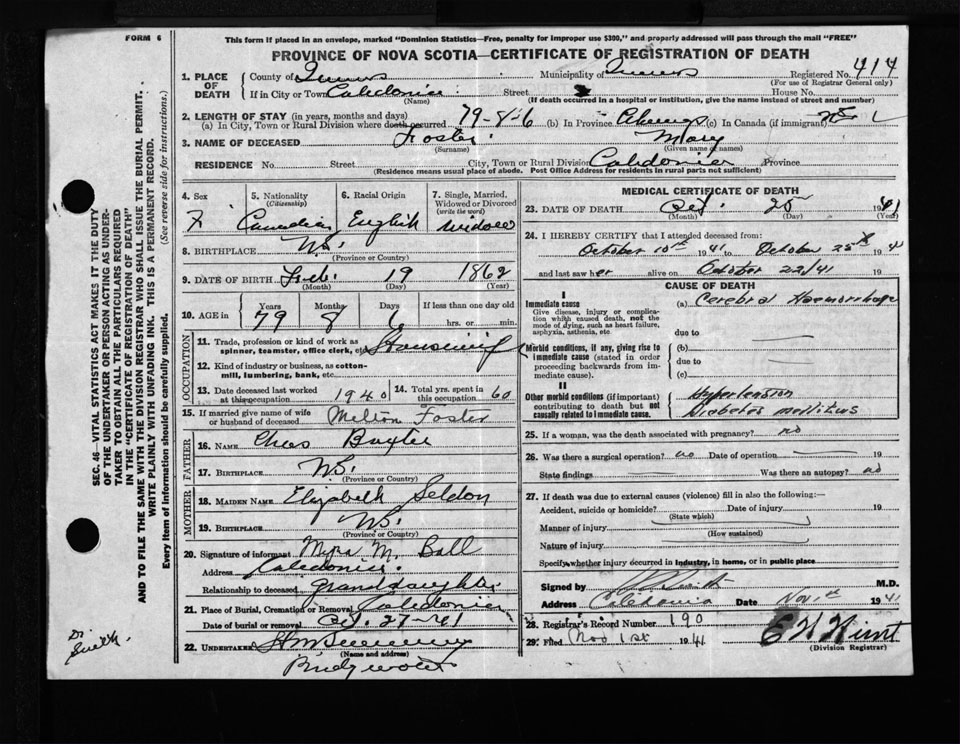 FORM 6
This form if placed in an envelope, marked "Dominion Statistics—Free, penalty for improper use $300," and properly addressed will pass through the mail "FREE"
PROVINCE OF NOVA SCOTIA—CERTIFICATE OF REGISTRATION OF DEATH
1. PLACE OF DEATH
County of Queens Municipality of Queens Registered No. 414
(For use of Registrar General only)
If in City or Town Caledonia Street House No.
(Name) (If death occurred in a hospital or institution, give the name instead of street and number)
2. LENGTH OF STAY (in years, months and days)
(a) In City, Town or Rural Division where death occurred 79-8-6 (b) In Province Always (c) In Canada (if immigrant)
3. NAME OF DECEASED Foster Mary
(Surname) (Given name or names)
RESIDENCE No. Street City, Town or Rural Division Caledonia Province
(Residence means usual place of abode. Post Office Address for residents in rural parts not sufficient)
4. Sex
F
5. Nationality (Citizenship)
Canadian
6. Racial Origin
English
7. Single, Married, Widowed or Divorced (write the word)
Widow
8. BIRTHPLACE N.S.
(Province or Country)
9. DATE OF BIRTH Feb. 19 1862
(Month) (Day) (Year)
10. AGE in Years Months Days If less than one day old
79 8 6 hrs. or min.
OCCUPATION
11. Trade, profession or kind of work as spinner, teamster, office clerk, etc.
12. Kind of industry or business, as cotton-mill, lumbering, bank, etc.
13. Date deceased last worked at this occupation 1940
14. Total yrs. spent in this occupation 60
15. If married give name of wife or husband of deceased Milton Foster
FATHER
16. NAME Chas
17. BIRTHPLACE N.S.
(Province or Country)
MOTHER
18. MAIDEN NAME Elizabeth Seldon
19. BIRTHPLACE N.S.
(Province or Country)
20. Signature of informant Myra M. Ball
Address Caledonia.
Relationship to deceased granddaughter
21. Place of Burial, Cremation or Removal Caledonia
Date of burial or removal Oct. 27-41
22. UNDERTAKER
(Name and address)
Bridgewater
MEDICAL CERTIFICATE OF DEATH
23. DATE OF DEATH Oct. 25 1941
(Month) (Day) (Year)
24. I HEREBY CERTIFY that I attended deceased from:
October 10th 1941 to October 25th 1941
and last saw her alive on October 22/41 19
CAUSE OF DEATH
I
Immediate cause (a) Cerebral Haemorrhage
Give disease, injury or complication which caused death, not the mode of dying, such as heart failure, asphyxia, asthenia, etc.
due to
Morbid conditions, if any, giving rise to immediate cause (stated in order proceeding backwards from immediate cause).
(b)
due to
(c)
II
Other morbid conditions (if important) contributing to death but not causally related to immediate cause.
Hypertension
Diabetes mellitus
25. If a woman, was the death associated with pregnancy? no
26. Was there a surgical operation? no Date of operation 19
State findings Was there an autopsy? no
27. If death was due to external causes (violence) fill in also the following:—
Accident, suicide or homicide? Date of injury 19
(State which)
Manner of injury
(How sustained)
Nature of injury
Specify whether injury occurred in industry, in home, or in public place
Signed by M.D.
Address Caledonia Date Nov. 1st 1941
28. Registrar's Record Number 190
29. Filed Nov 1st 1941
(Division Registrar)
SEC. 46—VITAL STATISTICS ACT MAKES IT THE DUTY
OF THE UNDERTAKER OR PERSON ACTING AS UNDERTAKER TO OBTAIN ALL THE PARTICULARS REQUIRED
IN THE "CERTIFICATE OF REGISTRATION OF DEATH"
AND TO FILE THE SAME WITH THE DIVISION REGISTRAR WHO SHALL ISSUE THE BURIAL PERMIT.
WRITE PLAINLY WITH UNFADING INK. THIS IS A PERMANENT RECORD.
Every item of information should be carefully supplied. (See reverse side for instructions.)
Dr Smith.